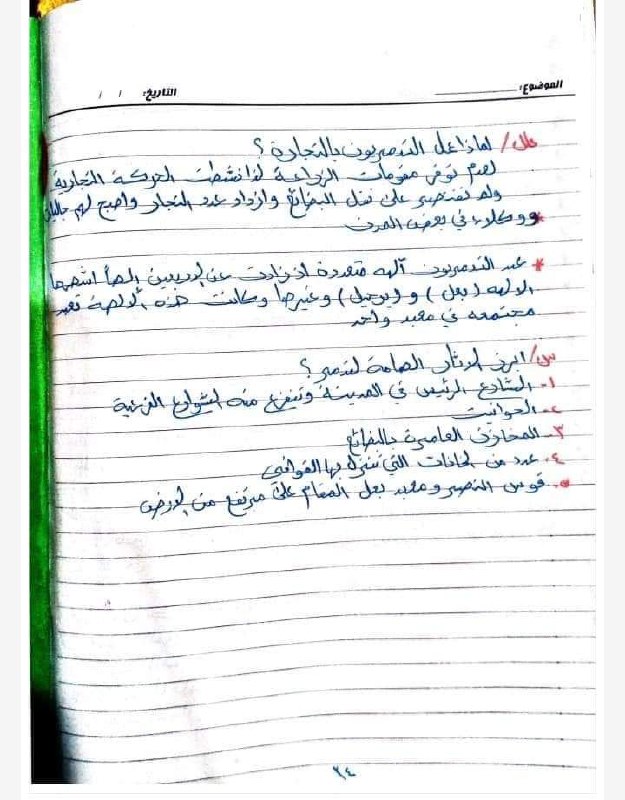 الموضوع: التاريخ: / /
علل/ لماذا عمل التدمريون بالتجارة ؟
لعدم توفر مقومات الزراعة لذا نشطت الحركة التجارية
ولم تقتصر على نقل البضائع وازداد عدد التجار واصبح لهم جاليات
ووكلاء في بعض المدن
* عبد التدمريون آلهه متعددة اذ زادت عن اربعين إلهاً اشهرها
الالهه (بعل) و (يرحبل) وغيرها وكانت هذه الالهة تعبد
مجتمعه في معبد واحد
س/ ابرز الاثار الهامة لتدمر ؟
١- الشارع الرئيس في المدينة وتتفرع منه الشوارع الفرعية
٢- الحوانيت
٣- المخازن العامرة بالبضائع
٤- عدد من الخانات التي تنزل بها القوافل
٥- قوس النصر ومعبد بعل المقام على مرتفع من الارض
٢٤